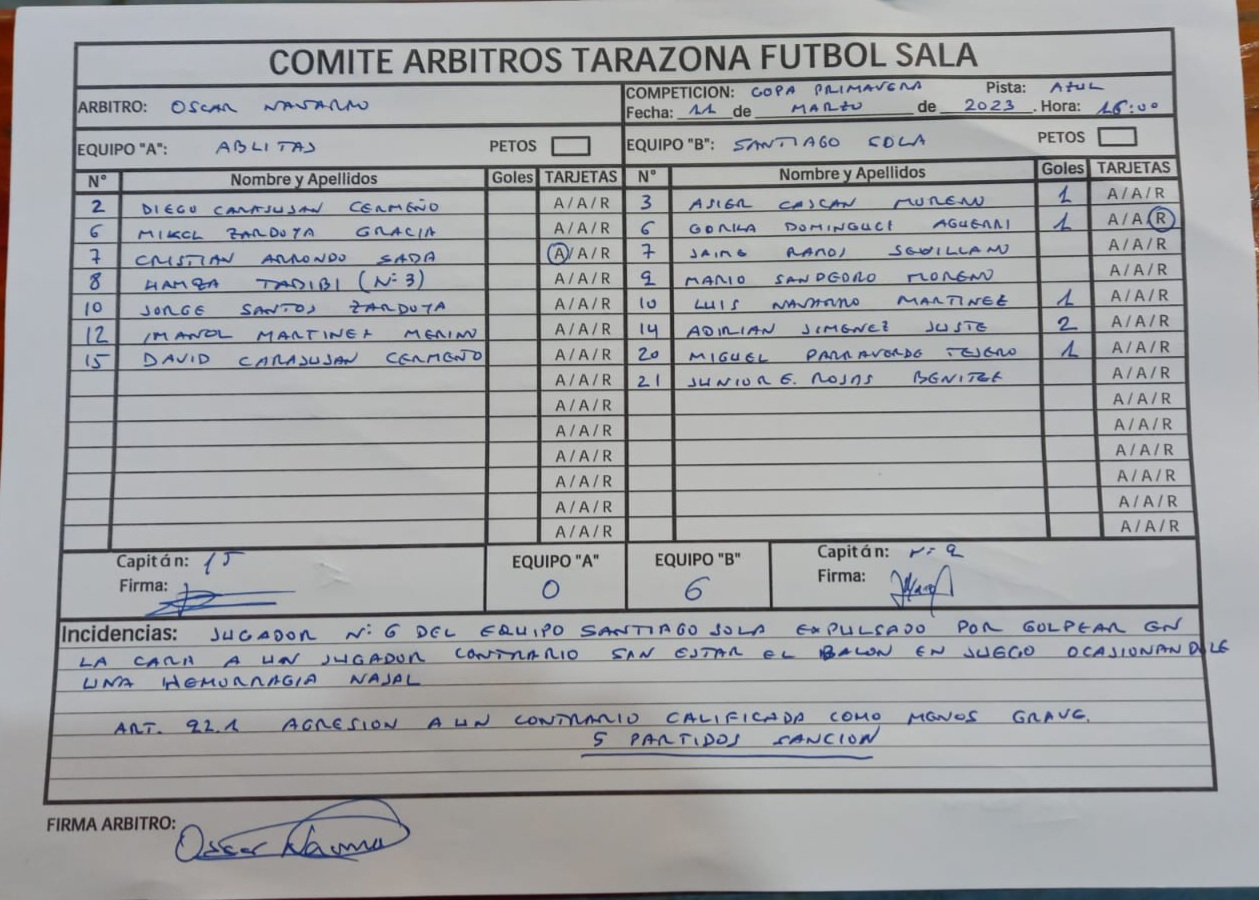 COMITE ARBITROS TARAZONA FUTBOL SALA
ARBITRO: OSCAR NAVARRO
COMPETICION: COPA PRIMAVERA Pista: AZUL
Fecha: 11 de MARZO de 2023. Hora: 16:00
EQUIPO "A": ABLITAS PETOS
EQUIPO "B": SANTIAGO SOLA PETOS
Nº Nombre y Apellidos Goles TARJETAS Nº Nombre y Apellidos Goles TARJETAS
2 DIEGO CARASUSAN CERMEÑO A/A/R 3 ASIER CASCAN MORENO 1 A/A/R
6 MIKEL ZARDOYA GRACIA A/A/R 6 DOMINGUEZ AGUERRI 1 A/A/R
7 CRISTIAN ARRONDO SADA A/A/R 7 JAIME RAMOS SEVILLANO A/A/R
8 HAMZA TADIBI (Nº3) A/A/R 9 MARIO SANPEDRO MORENO A/A/R
10 JORGE SANTOS ZARDOYA A/A/R 10 LUIS NAVARRO MARTINEZ 1 A/A/R
12 IMANOL MARTINEZ MERINO A/A/R 14 ADRIAN JIMENEZ JUSTE 2 A/A/R
15 DAVID CARASUSAN CERMEÑO A/A/R 20 MIGUEL TEJERO 1 A/A/R
A/A/R 21 JUNIOR E. ROJAS BENITEZ A/A/R
A/A/R A/A/R
A/A/R A/A/R
A/A/R A/A/R
A/A/R A/A/R
A/A/R A/A/R
A/A/R A/A/R
Capitán: 15 EQUIPO "A" EQUIPO "B" Capitán: Nº 9
Firma: 0 6 Firma:
Incidencias: JUGADOR Nº 6 DEL EQUIPO SANTIAGO SOLA EXPULSADO POR GOLPEAR EN
LA CARA A UN JUGADOR CONTRARIO SAN ESTAR EL BALON EN JUEGO OCASIONANDOLE
UNA HEMORRAGIA NASAL
ART. 92.1 AGRESION A UN CONTRARIO CALIFICADA COMO MENOS GRAVE.
5 PARTIDOS SANCION
FIRMA ARBITRO: Oscar Navarro